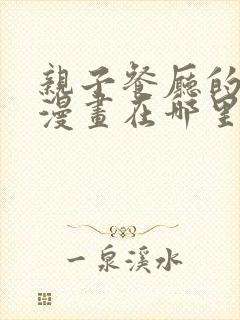 親子餐厅的
漫畫在哪里
一泉溪水